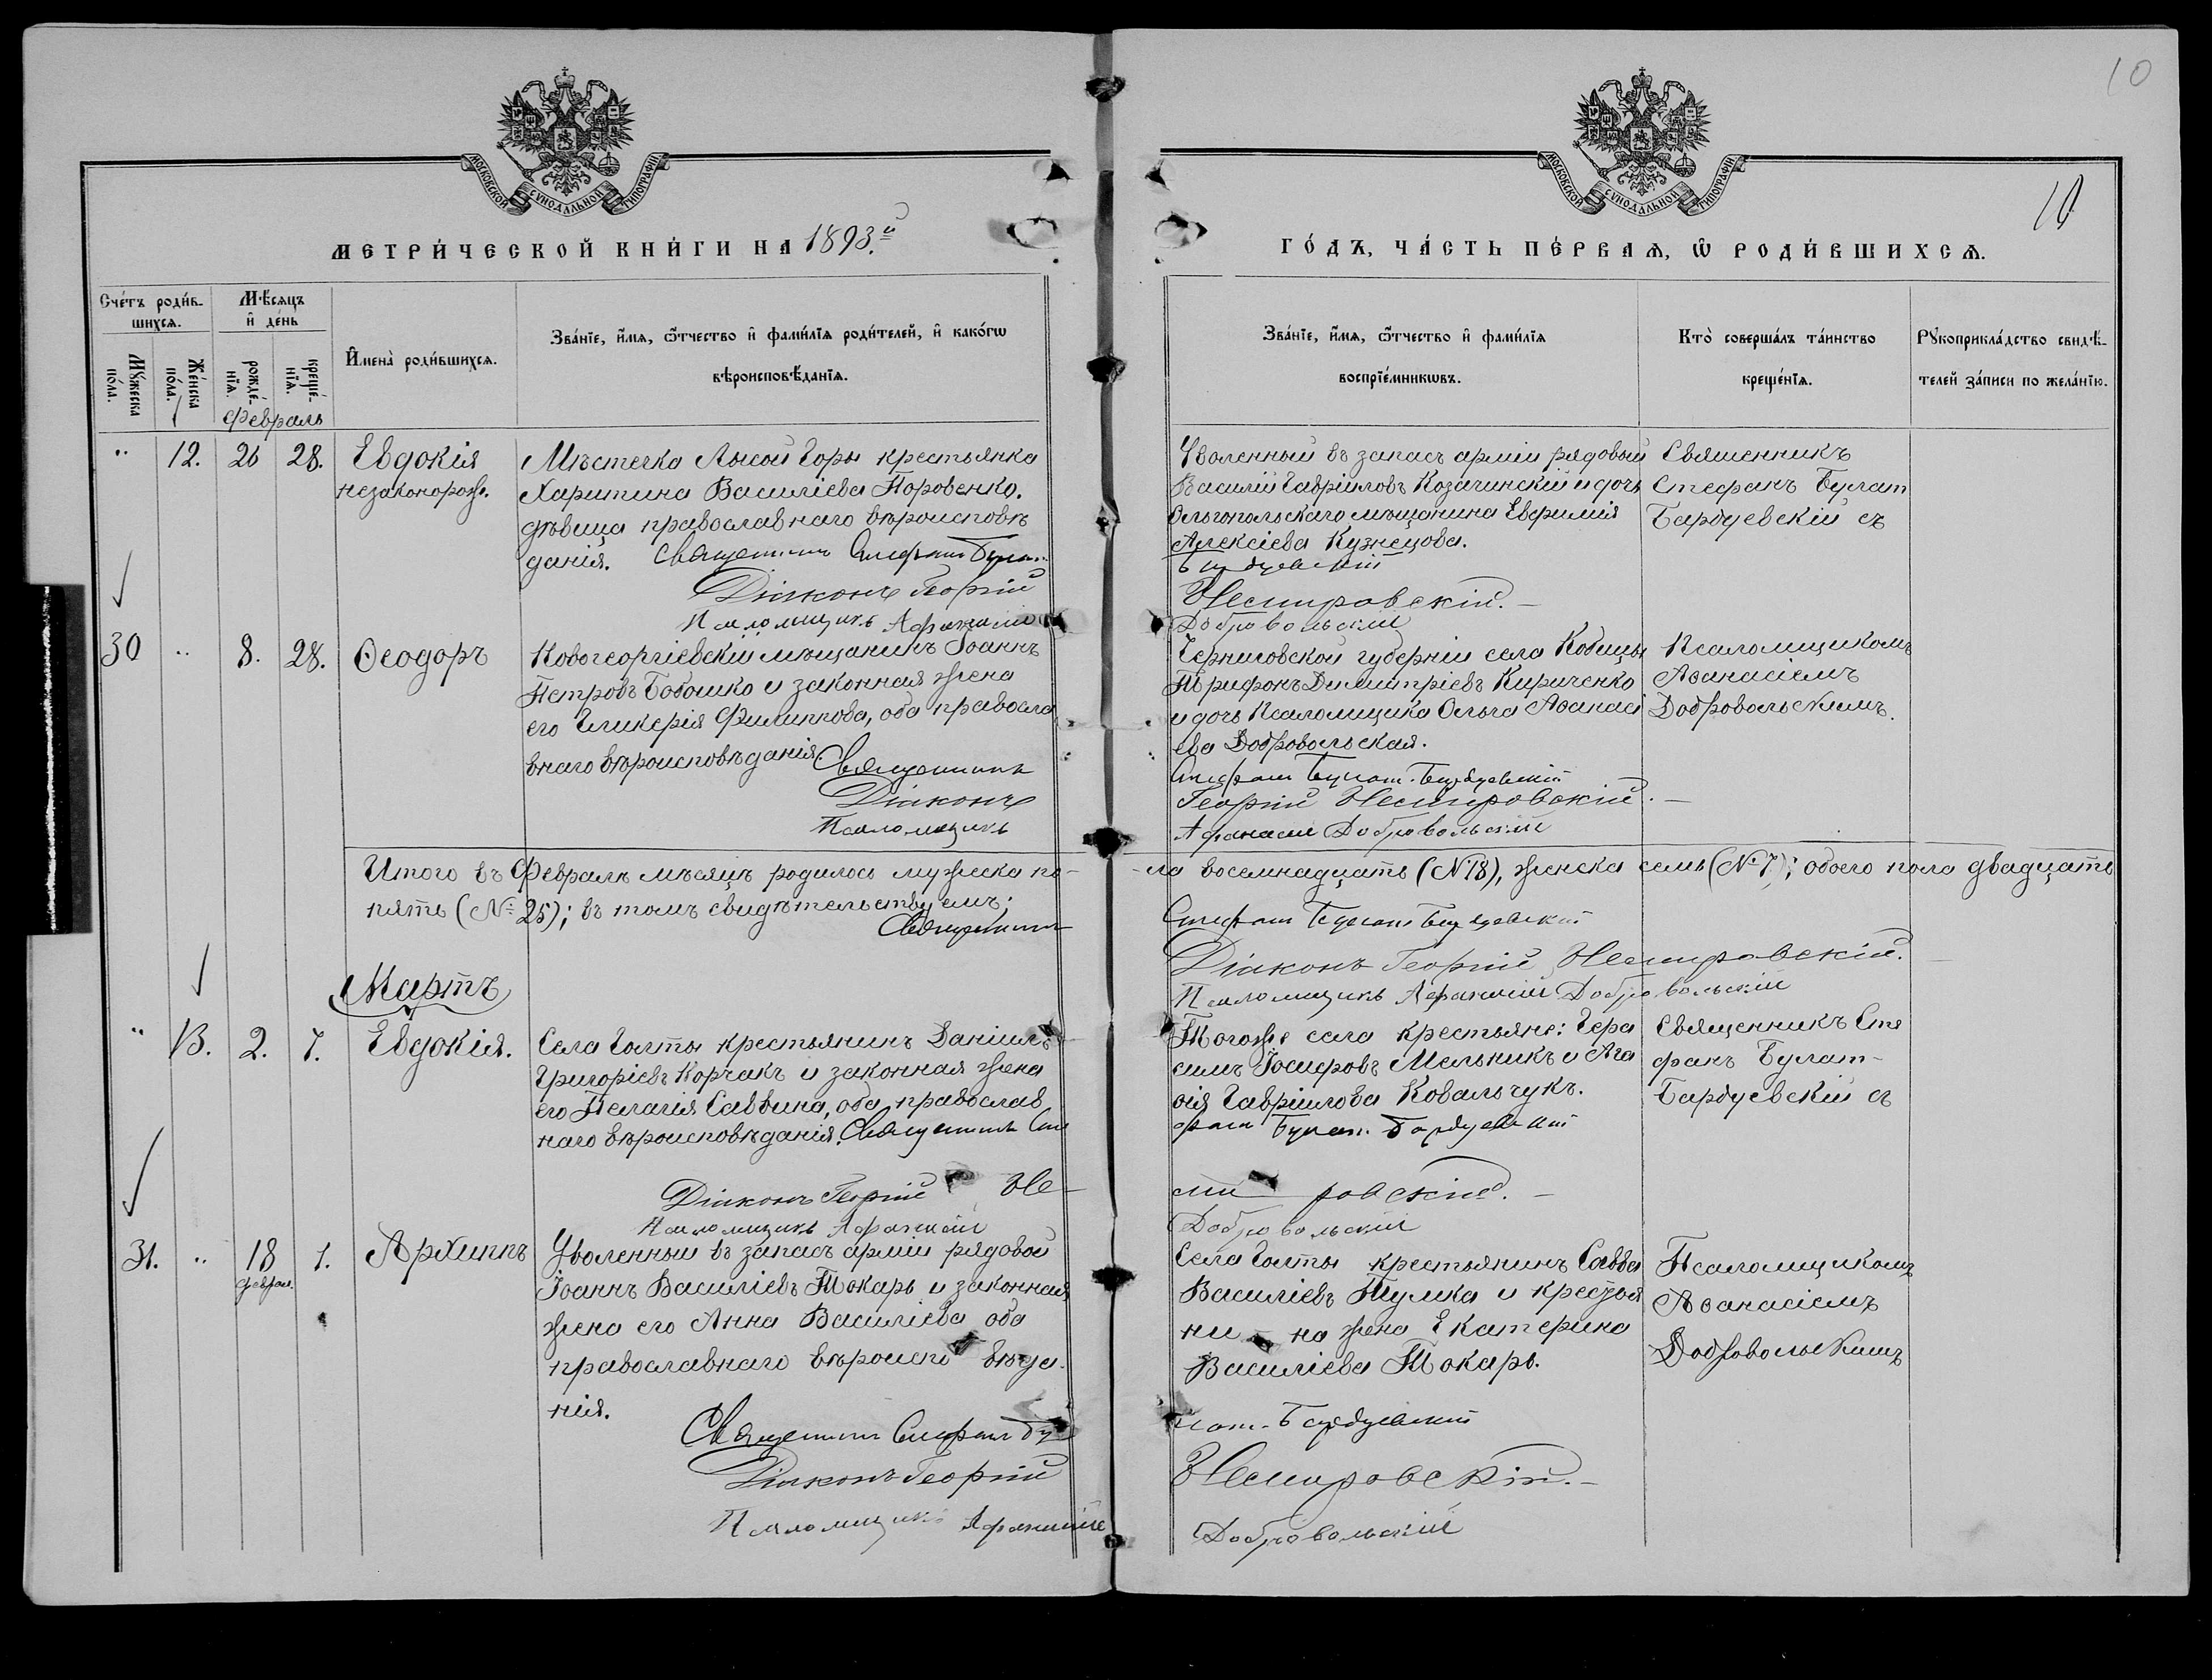 10
МОСКОВСКОЙ СУНОДАЛЬНОЙ ТИПОГРАФІИ
МОСКОВСКОЙ СУНОДАЛЬНОЙ ТИПОГРАФІИ
10
МЕТРИ́ЧЕСКОЙ КНИ́ГИ НА 1893.й
ГО́ДЪ, ЧА́СТЬ ПЕ́РВАѦ, Ѡ҆ РОДИ́ВШИХСѦ.
Сче́тъ роди́в-
шихсѧ.
Мꙋ́жеска
по́ла.
Же́нска
по́ла.
Мѣ́сѧцъ
и҆ де́нь
рожде́-
нїѧ.
креще́-
нїѧ.
Февраль
И҆мена̀ роди́вшихсѧ.
Зва́нїе, и҆́мѧ, ѻ҆́тчество и҆ фами́лїѧ роди́телей, и҆ како́гѡ
вѣроисповѣ́данїѧ.
Зва́нїе, и҆́мѧ, ѻ҆́тчество и҆ фами́лїѧ
воспрїе́мникѡвъ.
Кто̀ соверша́лъ та́инство
креще́нїѧ.
Рꙋкоприкла́дство свидѣ́-
телей за́писи по жела́нїю.
" 12. 26 28. Евдокія
незаконорожд.
Мѣстечка Лысой Горы крестьянка
Харитина Василіева Поровенко.
дѣвица православнаго вѣроисповѣ
данія. Священникъ Стефанъ Булат
Діаконъ Георгій
Псаломщикъ Афанасій
Уволенный въ запасъ арміи рядовый
Василій Гавріиловъ Козачинскій и дочь
Ольгопольскаго мѣщанина Евфимія
Алексіева Кузнецова.
Бардуевскій
Немировскій.
Добровольскій
Священникъ
Стефанъ Булат
Бардуевскій съ
30 " 8. 28. Ѳеодоръ
Новогеоргіевскій мѣщанинъ Іоаннъ
Петровъ Бабошко и законная жена
его Гликерія Филиппова, оба правосла
внаго вѣроисповѣданія. Священникъ
Діаконъ
Псаломщикъ
Черниговской губерніи села Кобищъ
Трифонъ Димитріевъ Кириченко
и дочь Псаломщика Ольга Аѳанасі
ева Добровольская.
Стефанъ Булат-Бардуевскій
Георгій Немировскій.
Афанасій Добровольскій
Псаломщикомъ
Аѳанасіемъ
Добровольскимъ.
Итого въ Февралѣ мѣсяцѣ родилось мужеска по-
-ла восемнадцать (№18), женска семь (№7); обоего пола двадцать
пять (№ 25); въ томъ свидѣтельствуемъ:
Священникъ
Стефанъ Булат-Бардуевскій
Діаконъ Георгій Немировскій.
Псаломщикъ Афанасій Добровольскій
Мартъ
" 13. 2. 7. Евдокія.
Села Голты крестьянинъ Даніилъ
Григоріевъ Корчакъ и законная жена
его Пелагія Саввина, оба православ
наго вѣроисповѣданія. Священникъ Сте
Діаконъ Георгій Не-
Псаломщикъ Афанасій
Тогоже села крестьяне: Гера
симъ Іосифовъ Мельникъ и Ага
ѳія Гавріилова Ковальчукъ.
фанъ Булат-Бардуевскій
ми ровскій.
Добровольскій
Священникъ Сте
фанъ Булат-
Бардуевскій съ
31. " 18 1. Архиппъ
Феврал.
Уволенный въ запасъ арміи рядовой
Іоаннъ Василіевъ Токарь и законная
жена его Анна Василіева оба
православнаго вѣроиспо вѣда-
нія.
Священникъ Стефанъ Бу
Діаконъ Георгій
Псаломщикъ Афанасій
Села Голты крестьянинъ Савва
Василіевъ Тумка и крестья
ни на жена Екатерина
Василіева Токарь.
лат-Бардуевскій
Немировскій.
Добровольскій
Псаломщикомъ
Аѳанасіемъ
Добровольскимъ